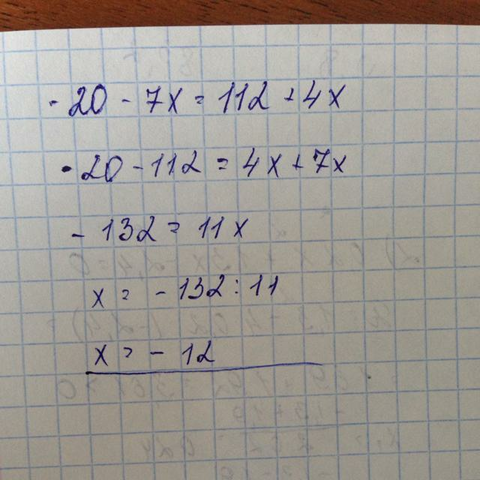 -20 - 7x = 112 + 4x
-20 - 112 = 4x + 7x
- 132 = 11x
x = - 132 : 11
x = - 12